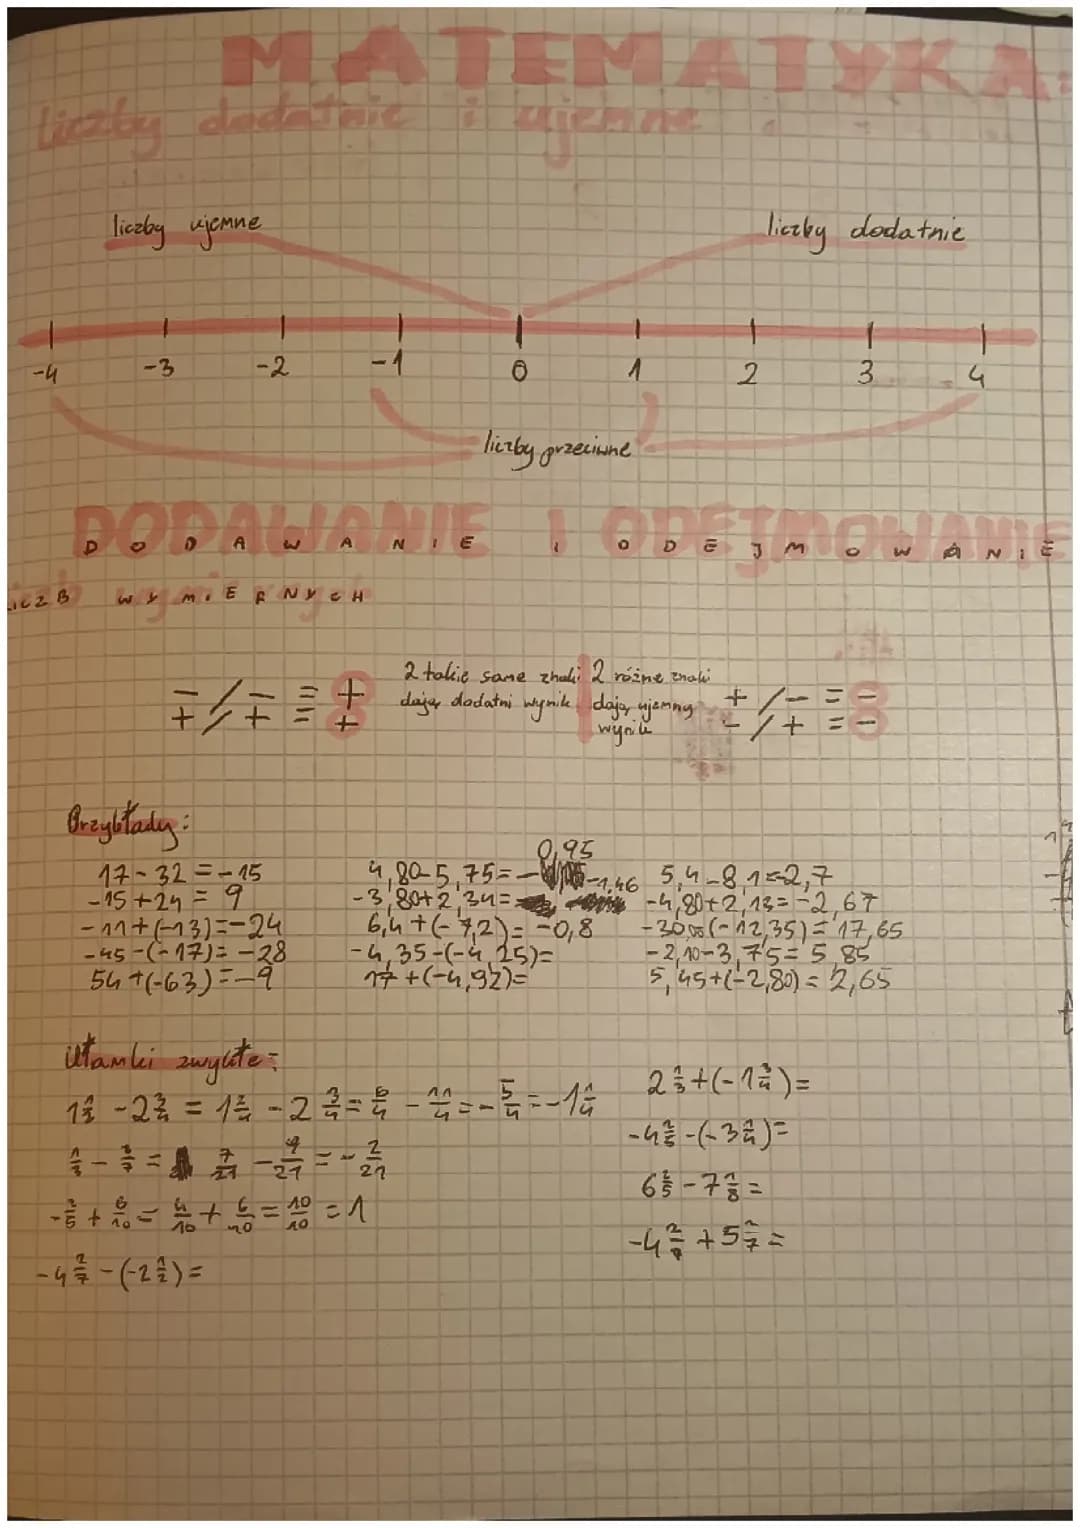 MATEMATYKA:
liczby dodatnie i ujemne
liczby ujemne liczby dodatnie
-4 -3 -2 -1 0 1 2 3 4
liczby przeciwne
DODAWANIE I ODEJMOWANIE
DODAWANIE I ODEJMOWANIE
LICZB WYMIERNYCH
- / - = +
+ / + = +
2 takie same znaki
dają dodatni wynik
2 różne znaki
dają ujemny
wynik
+ / - = -
- / + = -
Przykłady:
17-32=-15
-15+24=9
-11+(-13)=-24
-45-(-17)=-28
54+(-63)=-9
0,95
4,80-5,75=-
-3,80+2,34= -1,46
6,4+(-7,2)=-0,8
-4,35-(-4,25)=
17+(-4,92)=
5,4-8,1=-2,7
-4,80+2,13=-2,67
-30,00(-12,35)=17,65
-2,10-3,75=5,85
5,45+(-2,80)=2,65
Ułamki zwykłe:
1 1/2 - 2 3/4 = 1 2/4 - 2 3/4 = 6/4 - 11/4 = -5/4 = -1 1/4
1/3 - 3/7 = 7/21 - 9/21 = -2/21
-2/5 + 6/10 = 4/10 + 6/10 = 10/10 = 1
-4 2/7 - (-2 1/2) =
2 1/3 + (-1 3/4) =
-4 2/5 - (-3 1/4) =
6 3/5 - 7 1/8 =
+ 5 2/7 =